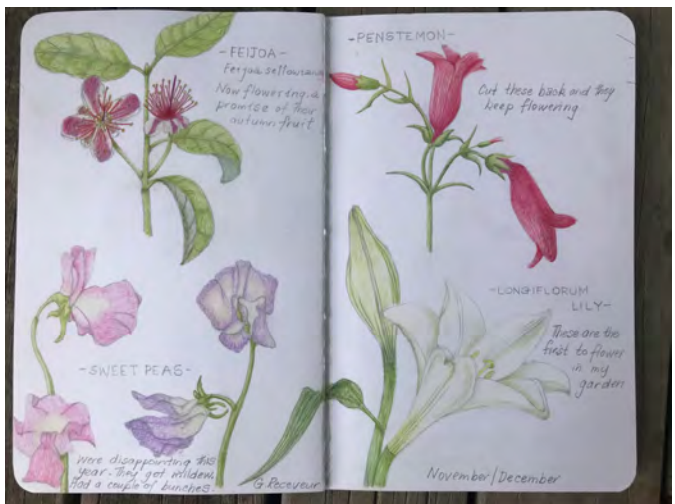 - FEIJOA -
Feijoa sellowiana
Now flowering, a
promise of their
autumn fruit
- SWEET PEAS -
Were disappointing this
year. They got mildew.
Had a couple of bunches.
G Receveur
- PENSTEMON -
Cut these back and they
keep flowering
- LONGIFLORUM
LILY -
These are the
first to flower
in my
garden
November/December